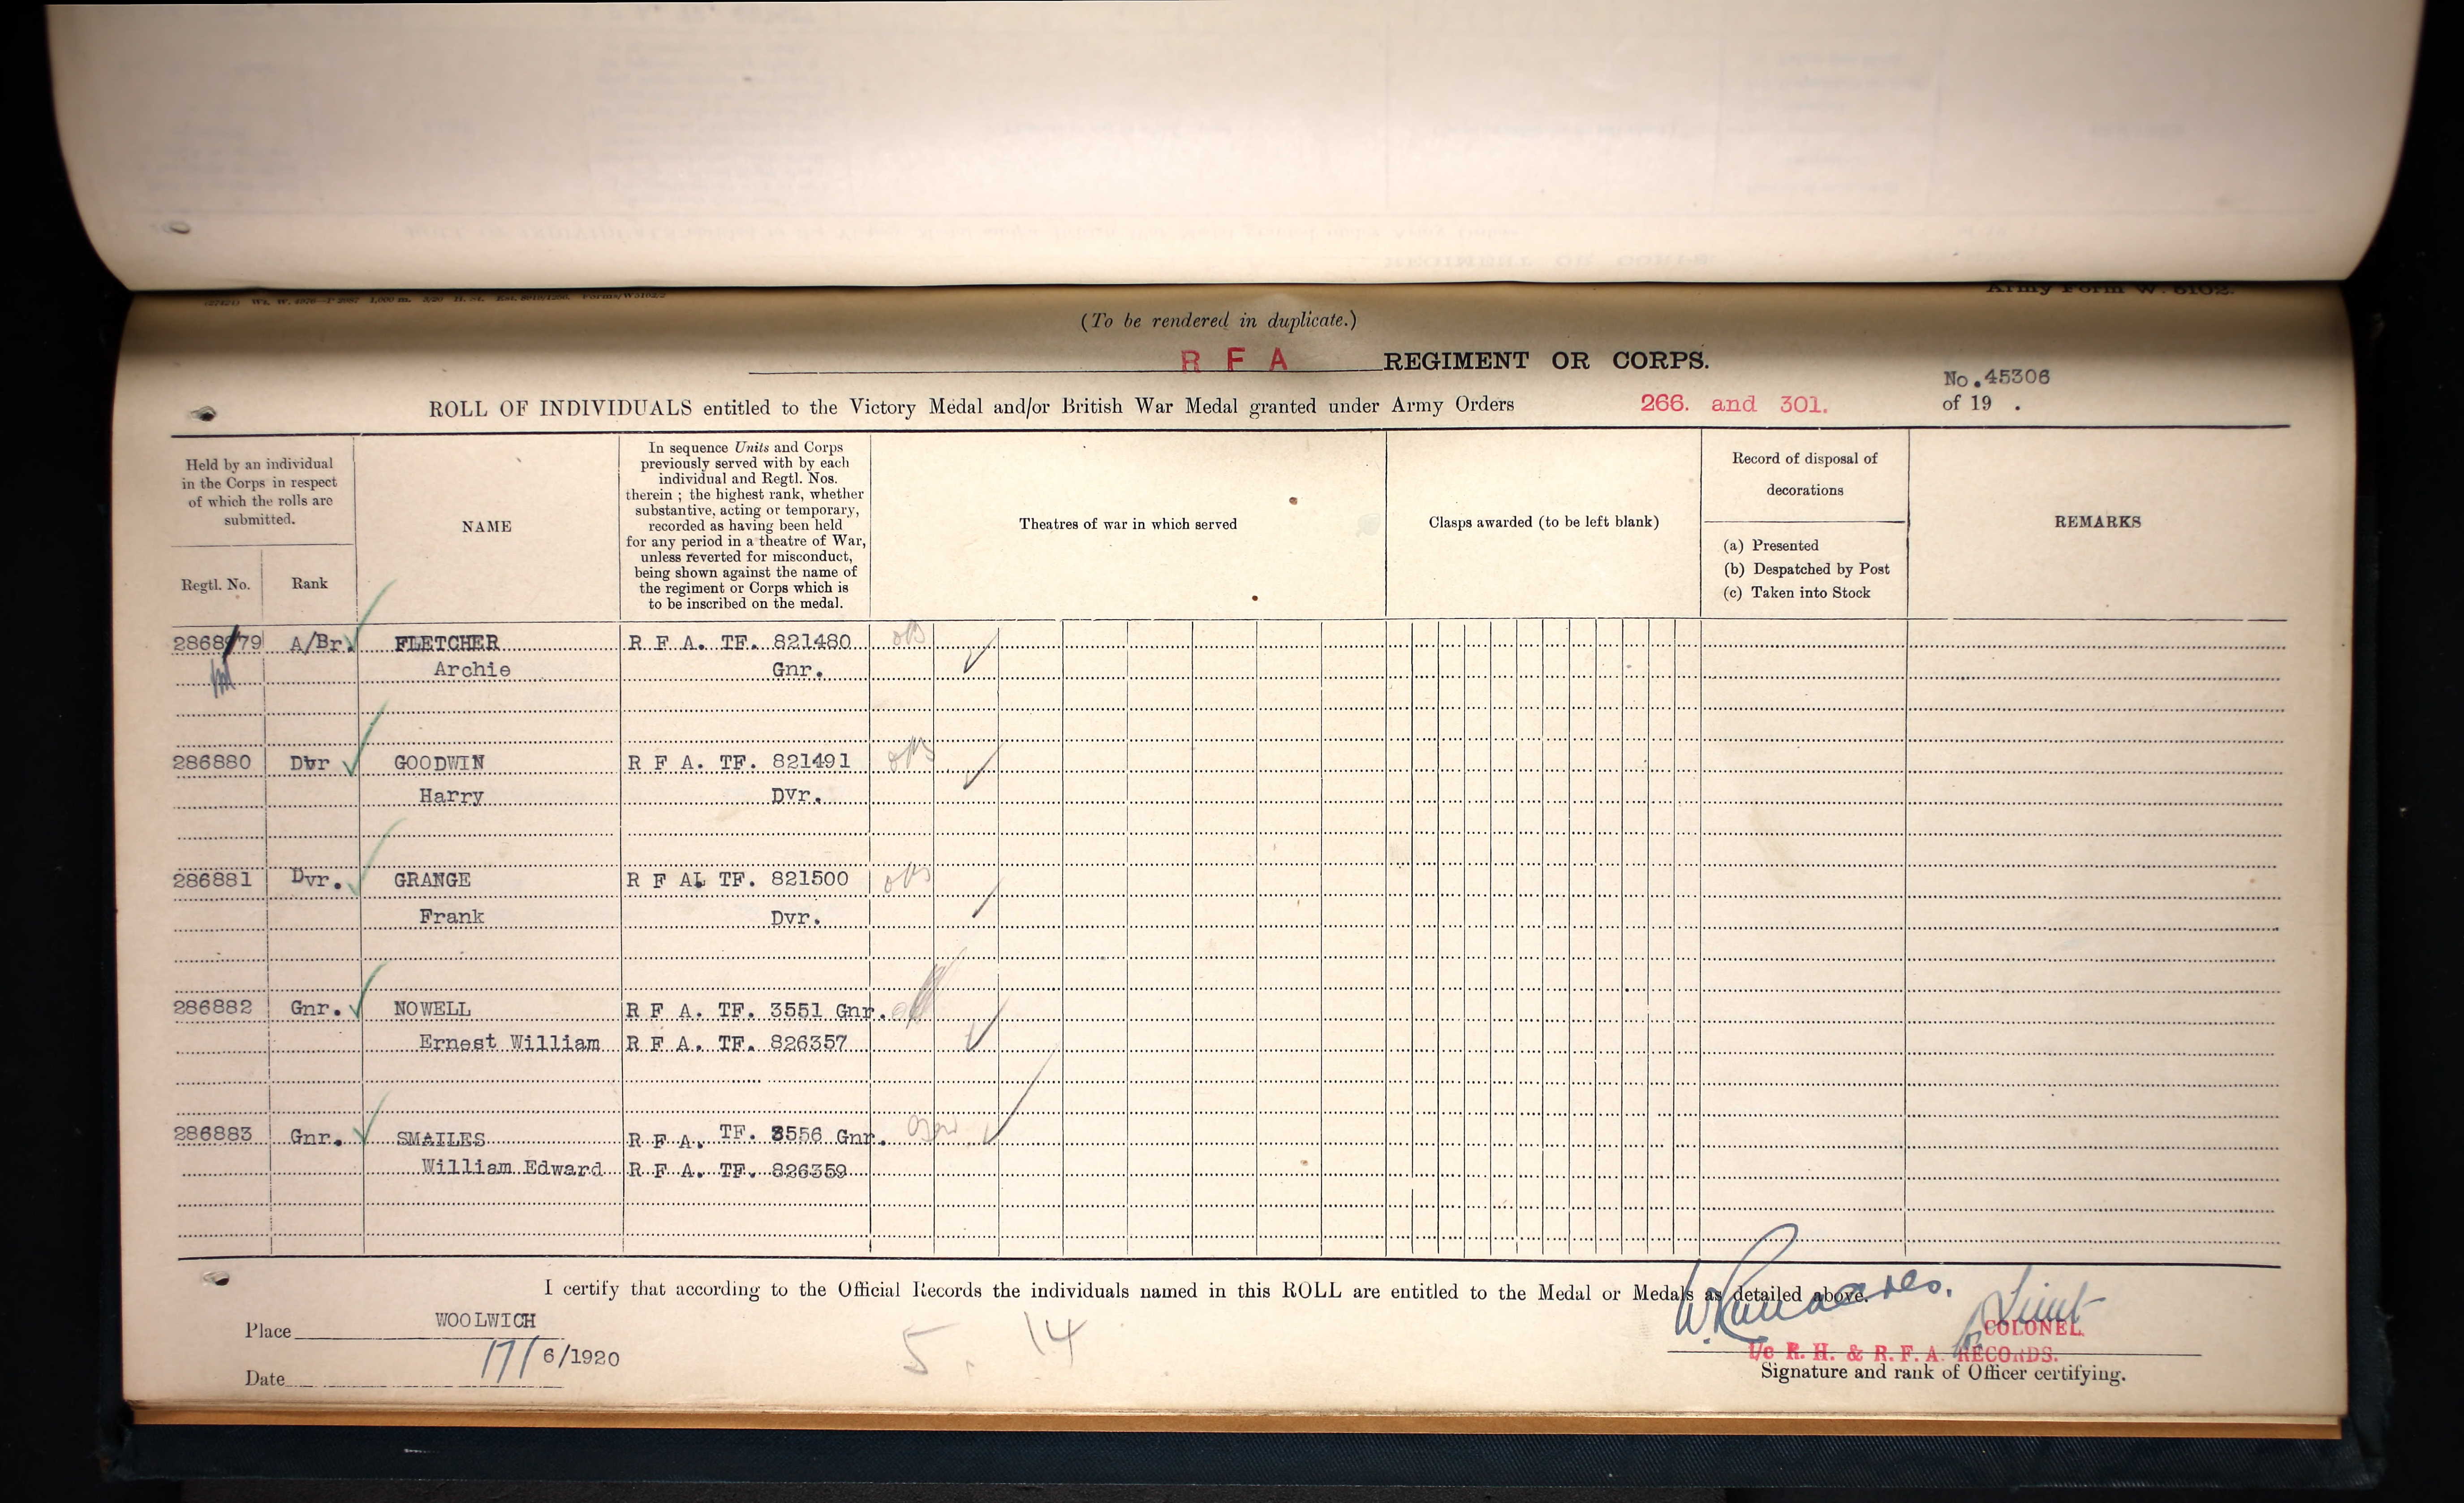 (To be rendered in duplicate.)
Army Form W. 5102.
R F A REGIMENT OR CORPS.
No.45306
ROLL OF INDIVIDUALS entitled to the Victory Medal and/or British War Medal granted under Army Orders 266. and 301. of 19 .
Held by an individual
in the Corps in respect
of which the rolls are
submitted.
Regtl. No.
Rank
NAME
In sequence Units and Corps
previously served with by each
individual and Regtl. Nos.
therein ; the highest rank, whether
substantive, acting or temporary,
recorded as having been held
for any period in a theatre of War,
unless reverted for misconduct,
being shown against the name of
the regiment or Corps which is
to be inscribed on the medal.
Theatres of war in which served
Clasps awarded (to be left blank)
Record of disposal of
decorations
(a) Presented
(b) Despatched by Post
(c) Taken into Stock
REMARKS
286879 A/Br. FLETCHER R F A. TF. 821480
Archie Gnr.
286880 Dvr GOODWIN R F A. TF. 821491
Harry Dvr.
286881 Dvr. GRANGE R F A. TF. 821500
Frank Dvr.
286882 Gnr. NOWELL R F A. TF. 3551 Gnr.
Ernest William R F A. TF. 826357
286883 Gnr. SMAILES R F A. TF. 3556 Gnr.
William Edward R F A. TF. 826359
I certify that according to the Official Records the individuals named in this ROLL are entitled to the Medal or Medals as detailed above.
Place WOOLWICH
Date 17/6/1920
5. 14
Lieut
for COLONEL.
I/c R. H. & R. F. A. RECORDS.
Signature and rank of Officer certifying.